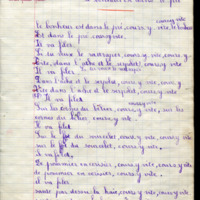 le bonheur est dans le pré, cours-y vite, le bonheur
Est dans le pré, cours-y vite.
Il va filer
Si tu veux le rattraper, cours-y vite, cours-y
vite, dans l'ache et le serpolet, cours-y vite
Il va filer
Dans l'ache et le serpolet, cours-y vite, cours-y
vite, dans l'ache et le serpolet, cours-y vite
Il va filer
Sur les cornes du bélier, cours-y vite, sur les
cornes du bélier, cours-y vite.
Il va filer
Sur le flot du sourcelet, cours-y vite, cours-y vite
sur le flot du sourcelet, cours-y vite.
Il va filer
De pommier en cerisier, cours-y vite, cours-y vite
de pommier en cerisier, cours-y vite
Il va filer
saute par dessus la haie, cours-y vite, cours-y